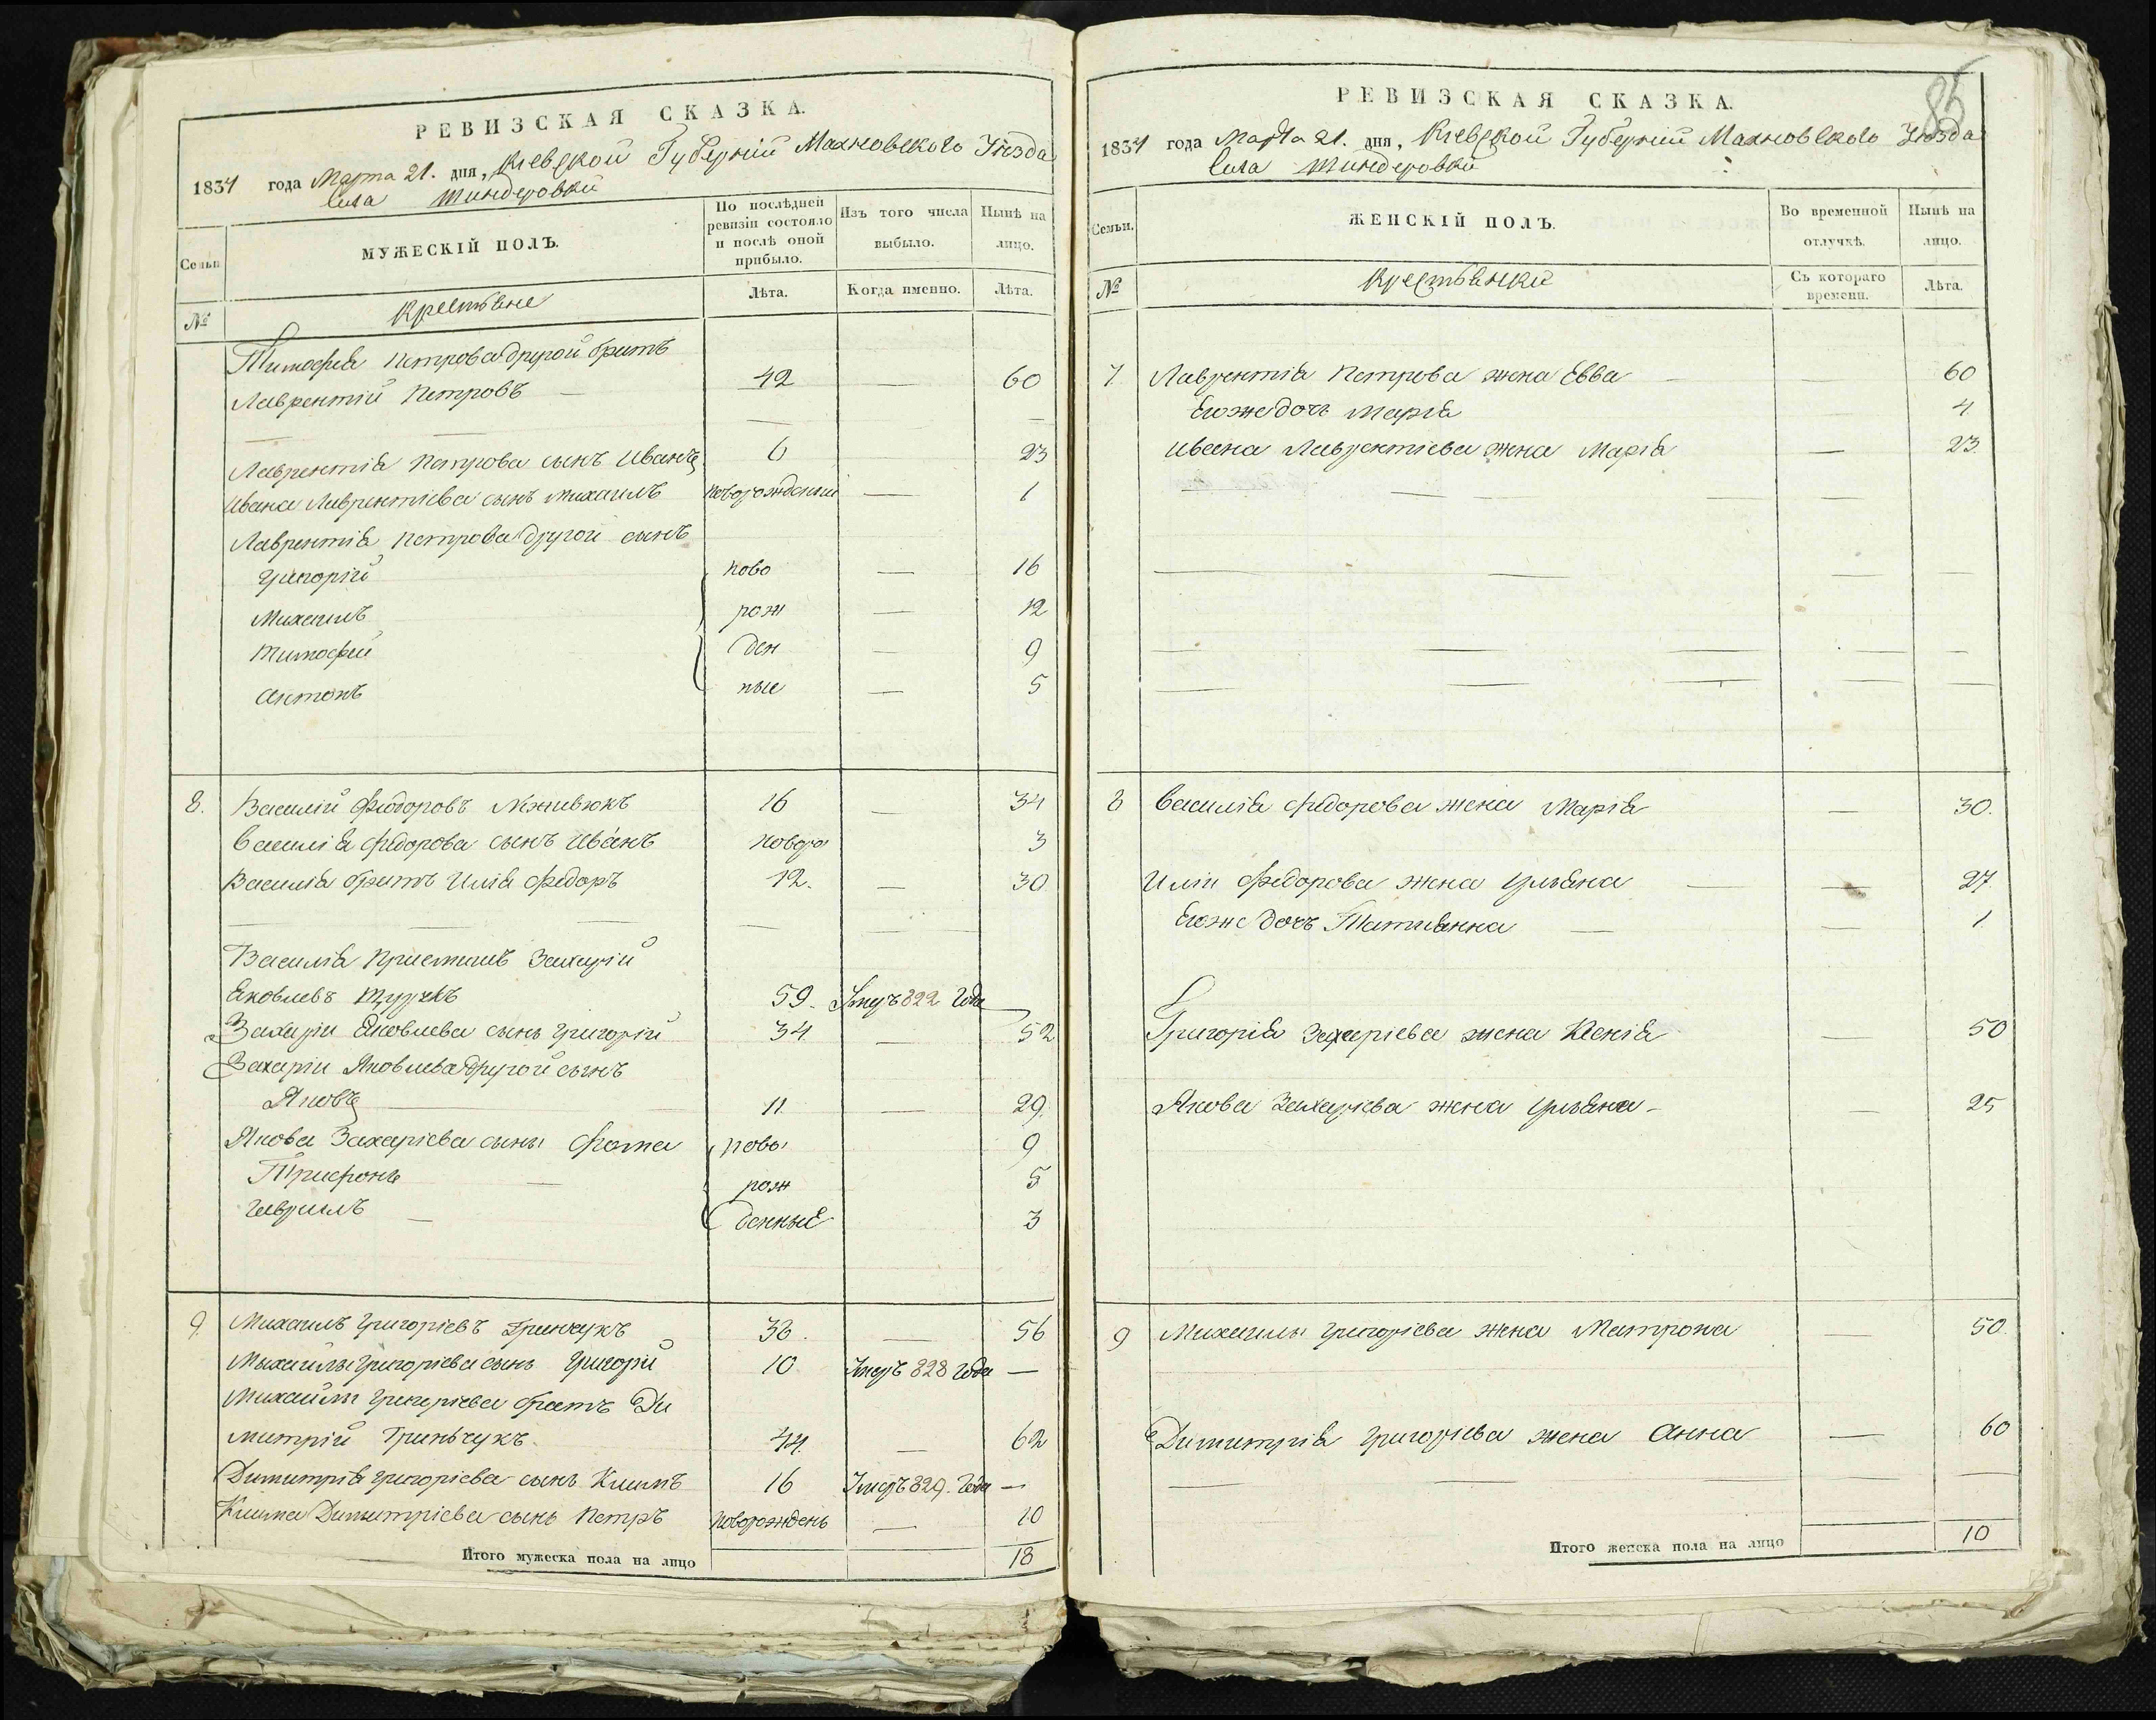 РЕВИЗСКАЯ СКАЗКА.
1834 года Марта 21. дня, Кіевской Губерніи Махновского Уѣзда
села Тиндеровки
Семьи
МУЖЕСКІЙ ПОЛЪ.
По послѣдней ревизіи состояло и послѣ оной прибыло.
Изъ того числа выбыло.
Нынѣ на лицо.
№
Крестьяне
Лѣта.
Когда именно.
Лѣта.
Тимофея Петрова другой братъ
Лаврентій Петровъ — 42 — 60
Лаврентія Петрова сынъ Иванъ 6 23
Ивана Лаврентіева сынъ Михаилъ новорожденный — 1
Лаврентія Петрова другой сынъ
Григорій ново — 16
Михаилъ рож — 12
Тимофей ден — 9
Антонъ ные — 5
8. Василій Федоровъ 16 — 34
Василія Федорова сынъ Иванъ новоро 3
Василія братъ Илія Федоръ 12. — 30
Василія Захарій
Яковлевъ 59. Умеръ 822 года
Захаріи Яковлева сынъ Григорій 34 — 52
Захаріи Яковлева другой сынъ
Яковъ 11 — 29.
Якова Захаріева сыны Фома ново 9
Трифонъ — рож 5
Гаврилъ — денные 3
9. Михаилъ Григоріевъ Гринчукъ 38. — 56
Михайлы Григоріева сынъ Григорій 10 Умеръ 828 года —
Михайлы Григоріева братъ Ди
митрій Гриньчукъ 44 — 62
Димитрія Григоріева сынъ Климъ 16 Умеръ 829. года —
Клима Димитріева сынъ Петръ новорожденъ — 10
Итого мужеска пола на лицо 18
85
РЕВИЗСКАЯ СКАЗКА.
1834 года Марта 21. дня, Кіевской Губерніи Махновского Уѣзда
села Тиндеровки
Семьи.
ЖЕНСКІЙ ПОЛЪ.
Во временной отлучкѣ.
Нынѣ на лицо.
№
Крестьянки
Съ котораго времени.
Лѣта.
7 Лаврентія Петрова жена Евва — 60
Егоже дочь Марія 4
Ивана Лаврентіева жена Марія — 23.
8 Василія Федорова жена Марія — 30.
Иліи Федорова жена Ульяна — 27.
Егоже дочъ Татиянна — 1
Григорія Захаріева жена Ксенія — 50
Якова Захаріева жена Ульяна — 25
9 Михайлы Григоріева жена Матрона — 50.
Димитрія Григоріева жена Анна — 60
Итого женска пола на лицо 10